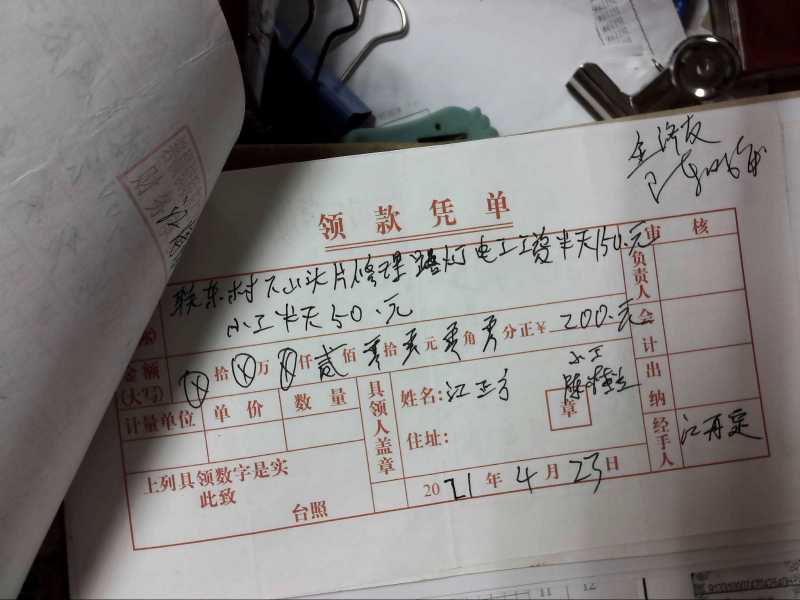 领款凭单
联东村下山头片修理路灯电工工资半天150.元
小工半天50.元
金额(大写) 拾 万 仟 贰 佰 零 拾 零 元 零 角 零 分正¥ 200.元
计量单位 单价 数量
上列具领数字是实
此致
台照
具领人盖章
姓名:江正方
小工
章
住址:
2021年4月23日
审核
负责人
会计
出纳
经手人